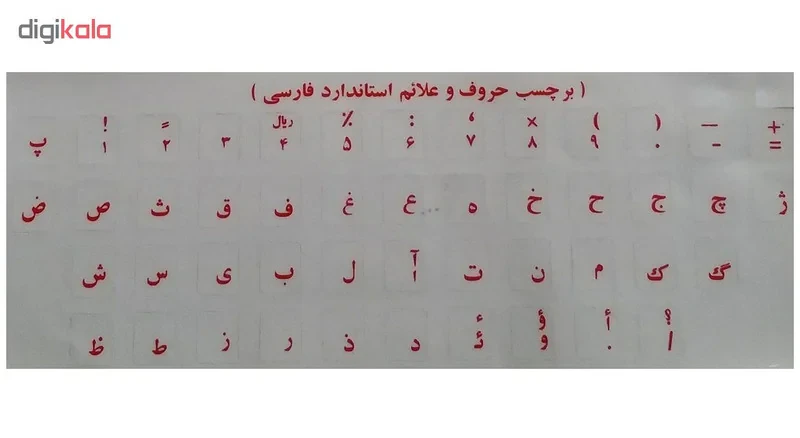 digikala
( برچسب حروف و علائم استاندارد فارسی )
! ً ریال ٪ : ، × ( ) — +
پ ۱ ۲ ۳ ۴ ۵ ۶ ۷ ۸ ۹ ۰ - =
ض ص ث ق ف غ ع ه خ ح ج چ ژ
ش س ی ب ل آ ا ت ن م ک گ
ء ؤ أ ؟
ظ ط ز ر ذ د ئ و . /